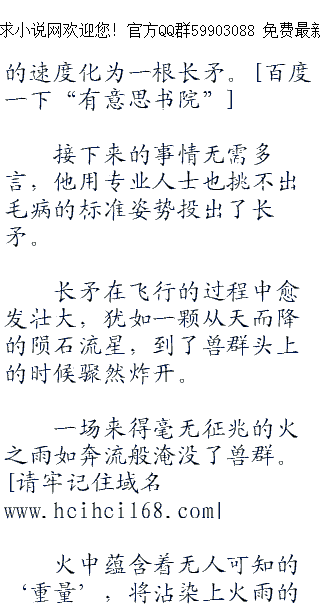 求小说网欢迎您！官方QQ群59903088 免费最新
的速度化为一根长矛。[百度
一下“有意思书院”]
接下来的事情无需多
言，他用专业人士也挑不出
毛病的标准姿势投出了长
矛。
长矛在飞行的过程中愈
发壮大，犹如一颗从天而降
的陨石流星，到了兽群头上
的时候骤然炸开。
一场来得毫无征兆的火
之雨如奔流般淹没了兽群。
[请牢记住域名
www.hcihci168.com|
火中蕴含着无人可知的
‘重量’，将沾染上火雨的